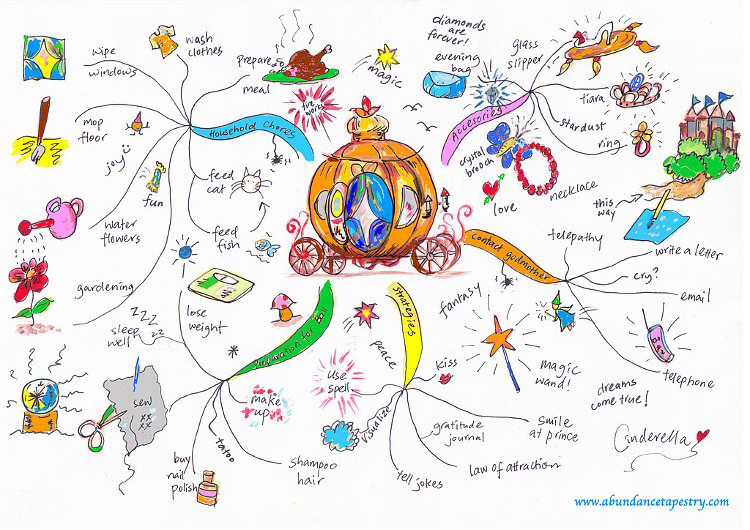 wash
clothes
wipe
windows
prepare
meal
magic
fire
works
mop
floor
Household Chores
joy
feed
cat
fun
water
flowers
feed
fish
gardening
diamonds
are
forever!
evening
bag
glass
slipper
Accesories
tiara
stardust
ring
crystal
brooch
necklace
love
this
way
contact godmother
telepathy
write a letter
cry?
email
telephone
magic
wand!
dreams
come true!
fantasy
Cinderella
lose
weight
zzz
zz
sleep
well
Preparation for Ball
sew
xx
xx
make
up
tatoo
buy
nail
polish
shampoo
hair
Strategies
peace
use
spell
kiss
visualize
smile
at prince
gratitude
journal
law of attraction
tell jokes
www.abundancetapestry.com